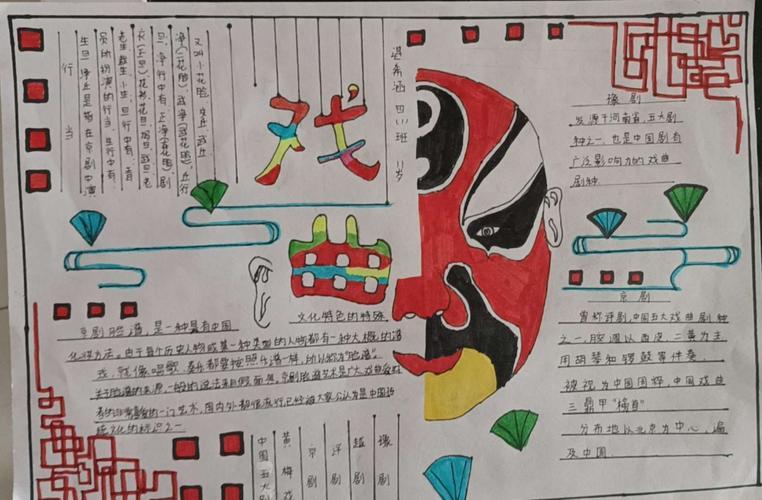 行当
生旦净丑是指在京剧中演
员的扮演的行当,生行中有:
老生,武生,小生,旦行中有:青
衣(正旦)花衫,花旦,武旦,老
旦,净行中有,正净(花脸),副
净(花脸),武净(武花脸),丑行
又叫小花脸,文丑,武丑
希涵 四班 11岁
戏
曲
文化特色的特殊
京剧脸谱,是一种具有中国
化妆方法。由于每个历史人物或某一种类型的人物都有一种大概的谱
戏,就像唱歌,奏乐都要按照乐谱一样,所以称为"脸谱".
关于脸谱的来源,一般的说法来自假面具。京剧脸谱艺术是广大戏曲爱好
者的非常喜爱的一门艺术,国内外都很流行,已经被大家公认为是中国传
统文化的标识之一
中国五大剧
黄梅戏
京剧
评剧
越剧
豫剧
豫剧
发源于河南省,五大剧
种之一,也是中国剧有
广泛影响力的戏曲
剧种
京剧
曾称评剧,中国五大戏曲剧种
之一,腔调以西皮,二黄为主
用胡琴和锣鼓等伴奏
被视为中国国粹,中国戏曲
三鼎甲"榜首"
分布地以北京为中心,遍
及中国